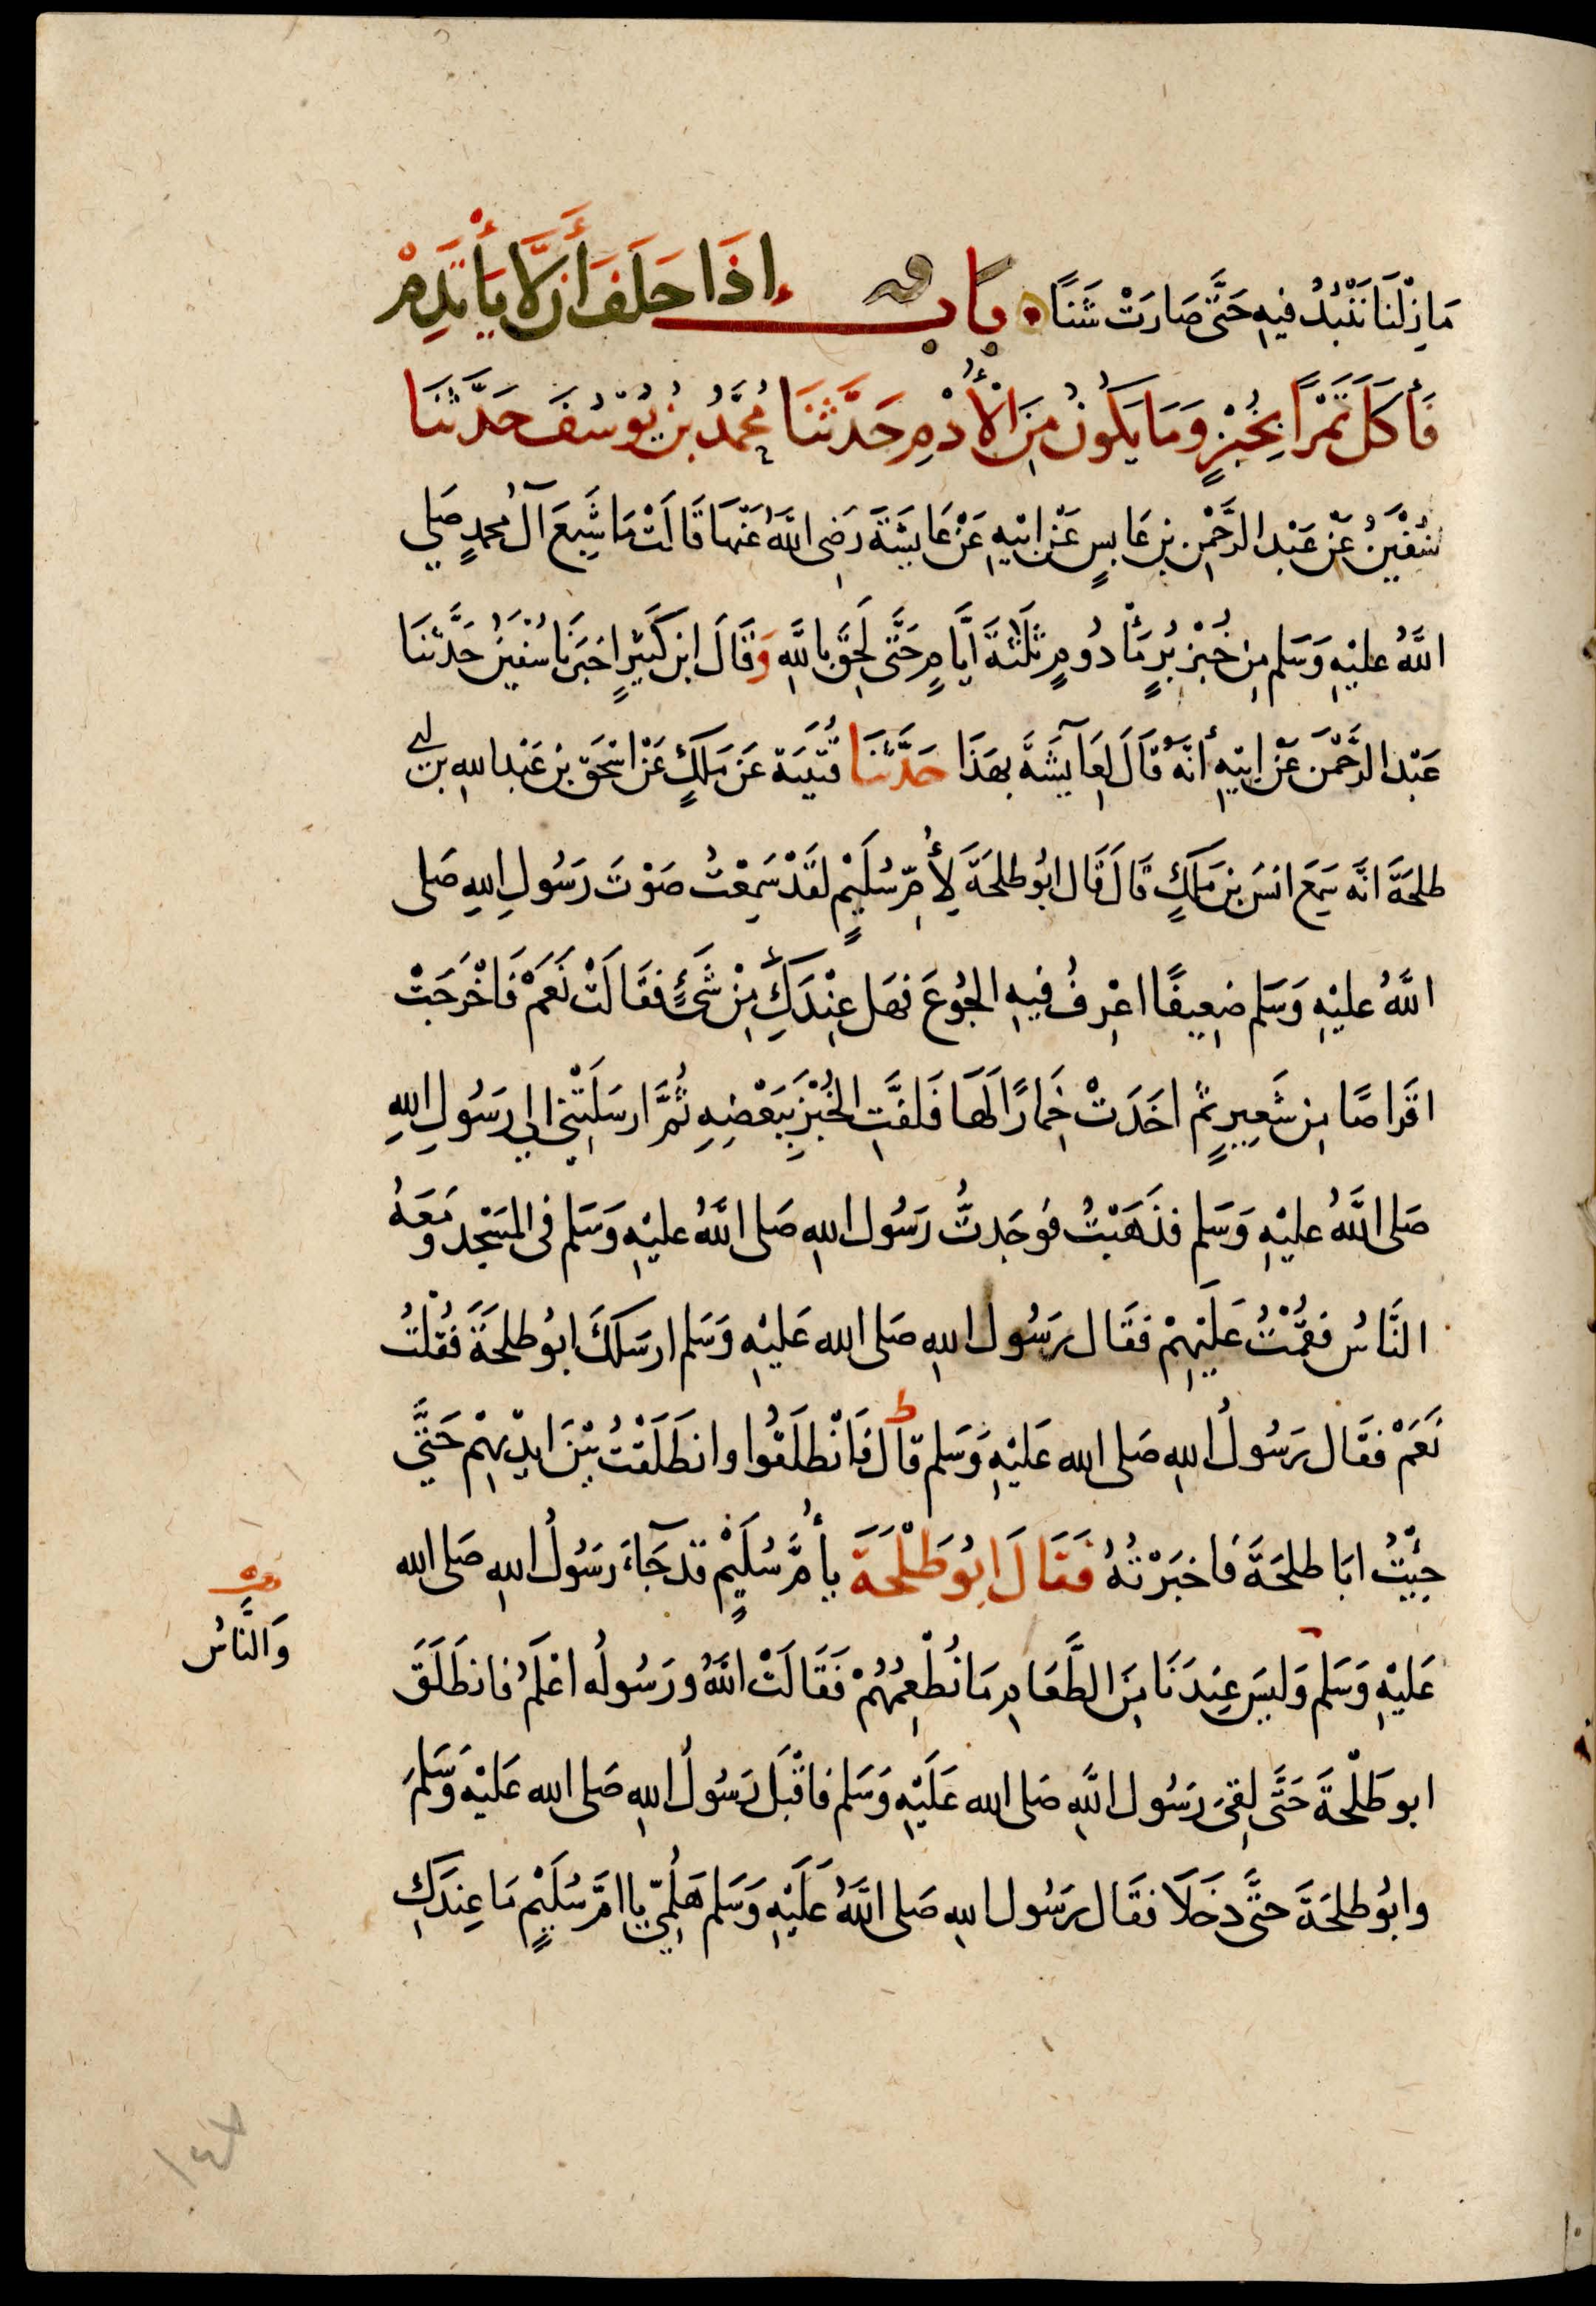 مَا زِلْنَا نَنْبُذُ فيهِ حَتَّى صَارَتْ شَنًّا باب إِذَا حَلَفَ أَن لَّا يَأْتَدِمْ
فَأَكَلَ تَمْرًا بِخُبْزٍ وَمَا يَكُونُ مِنَ الْأُدْمِ حَدَّثَنَا مُحَمَّدُ بنُ يُوْسُفَ حَدَّثَنَا
سُفْيٰنُ عَنْ عَبْدِ الرَّحْمٰنِ بنِ عَابِسٍ عَنْ ابِيْهِ عَنْ عَايِشَةَ رَضِىَ اللَّهُ عَنْهَا قَالَتْ مَا شَبِعَ آلُ مُحَمدٍ صَلى
اللَّهُ عليْهِ وَسَلم مِن خُبْزِ بُرٍّ مَأْدُومٍ ثَلٰثَةَ ايَّامٍ حَتَّى لَحِقَ بِاللَّهِ وَقَالَ ابن كَثِيْرٍ اخبَرَنَا سُفيٰنُ حَدَّثَنَا
عَبْدُ الرَّحْمٰن عَنْ ابِيْهِ أنَّهُ قَالَ لِعَآيِشَةَ بِهَذَا حَدَّثَنَا قُتَيْبَة عَن مٰلكٍ عَنْ اسْحٰقَ بْنِ عَبْدِ اللهِ بْنِ ابي
طلحَةَ انَّه سَمِعَ انسَ بنَ مٰلكٍ قَالَ قَالَ ابُو طلحَةَ لِأُمِّ سُلَيْمٍ لقَدْ سَمِعْتُ صَوْتَ رَسُولِ اللهِ صَلى
اللَّهُ عليْهِ وَسَلم ضعِيفًا اعْرِفُ فيهِ الجُوعَ فهَل عِنْدَكِ مِنْ شَىْءٍ فقَالَتْ نَعَمْ فَاخْرَجَتْ
اقرَاصًا مِن شَعِيرٍ ثُم اخَذَتْ خِمَارًا لَهَا فَلفَّتِ الخُبْزَ بِبَعْضِهِ ثُمَّ ارسَلَتْنِى الى رَسُولِ اللهِ
صَلى اللَّهُ عليْهِ وَسَلم فذَهَبْتُ فوَجَدتُّ رَسُول اللهِ صَلى اللَّهُ عليْهِ وَسَلم فى المَسْجِدِ وَمَعَهُ
النَّاسُ فقُمْتُ عَلَيْهِمْ فقَال رَسُولُ اللهِ صَلى الله عَليْهِ وَسَلم ارسَلَكَ ابُو طلحَةَ فقُلْتُ
نَعَمْ فقَال رَسُولُ اللهِ صَلى الله عَليْهِ وَسَلم قال فَانْطلَقُوا وانطَلَقْتُ بَيْنَ ايدِيْهِمْ حَتَّى
جِئْتُ ابَا طلحَةَ فاخبَرْتُهُ فَقَالَ ابُو طَلْحَةَ يا أُمَّ سُلَيْمٍ قد جَآءَ رَسُولُ اللهِ صَلى الله
وَالنَّاسُ
عَليْهِ وَسَلم وَليسَ عِندَنَا مِنَ الطَّعَامِ مَا نُطْعِمُهُمْ فَقَالَتْ اللَّهُ ورَسُولُه اعْلَمُ فانطَلَقَ
ابو طَلْحةَ حَتَّى لقِىَ رَسُول اللَّهِ صَلى الله عَلَيْهِ وَسَلم فاقْبَلَ رَسُولُ اللهِ صَلى الله عَليْهِ وَسَّلمَ
وابُو طلحَةَ حتَّى دَخَلَا فقَال رَسُول اللهِ صَلى اللَّهُ عَلَيْهِ وَسَلم هَلُمِّى يا امَّ سُلَيْمٍ مَا عِندَكِ